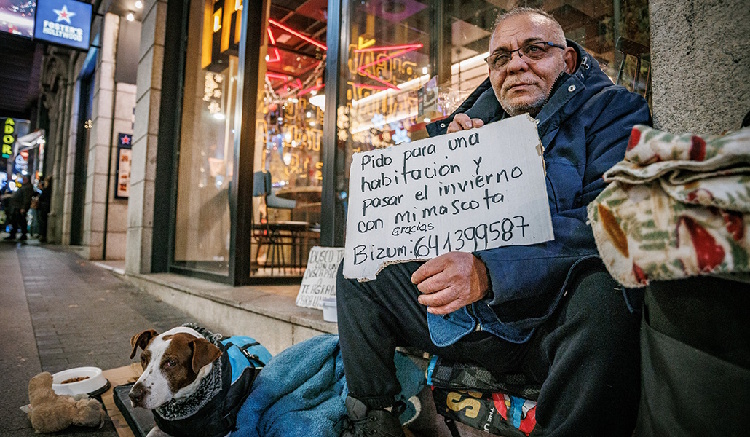 FOSTER'S
HOLLYWOOD
ADOR
Pido para una
habitación y
pasar el invierno
con mi mascota
Gracias
Bizum: 641399587
BUSCO